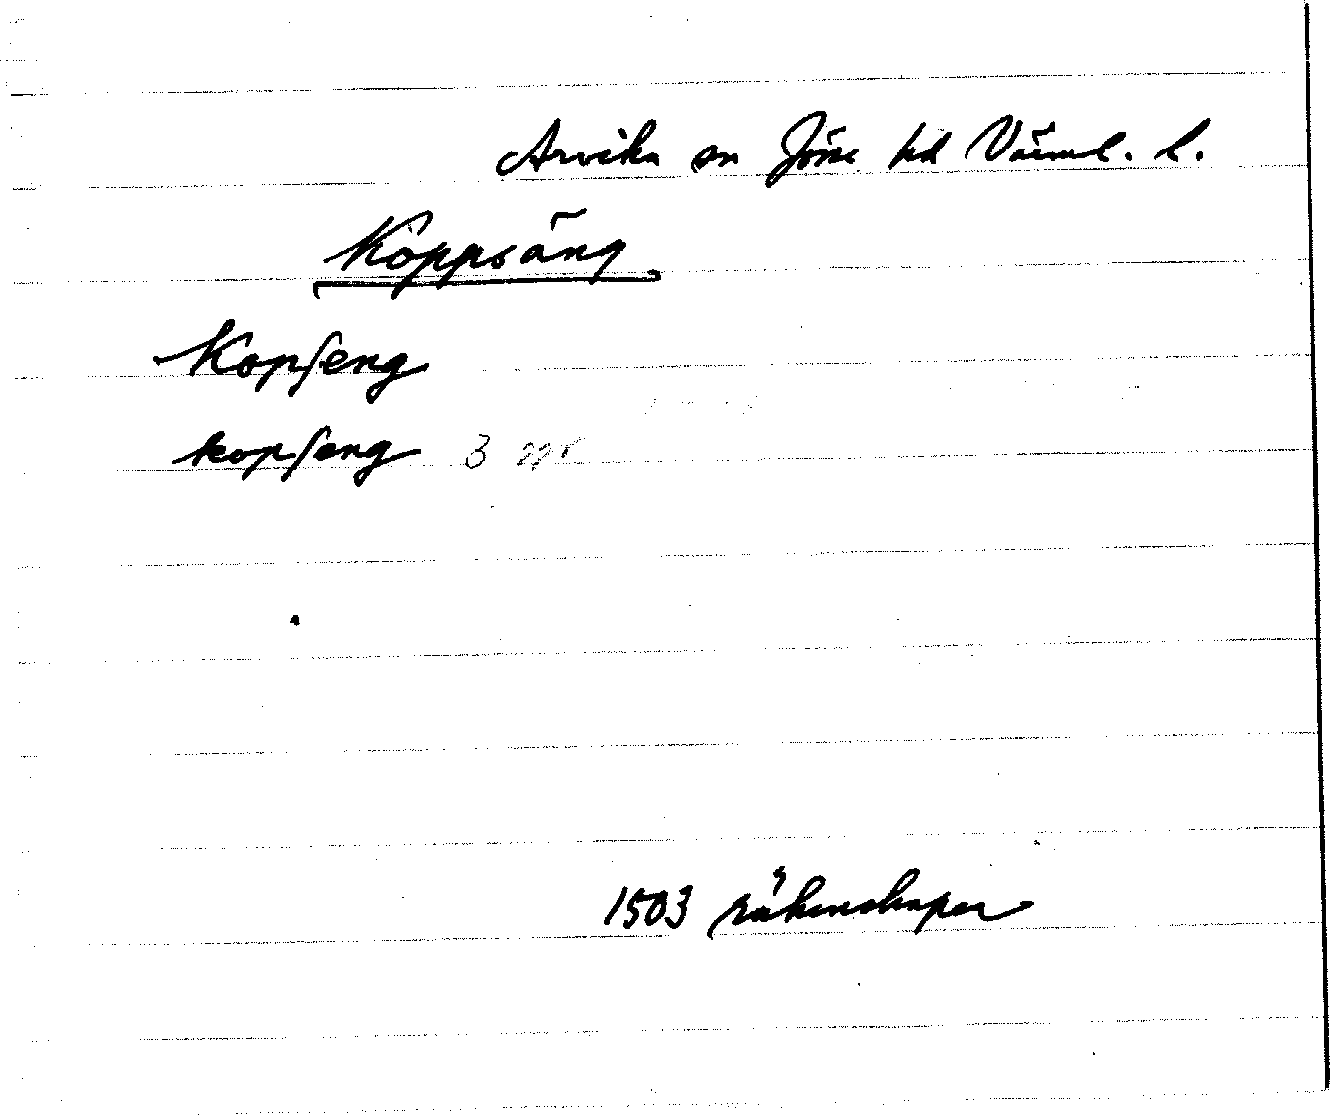 Arvika sn Jösse hd Värml. l.
Koppsäng
Kopseng
kopseng 3
1503 räkenskaper